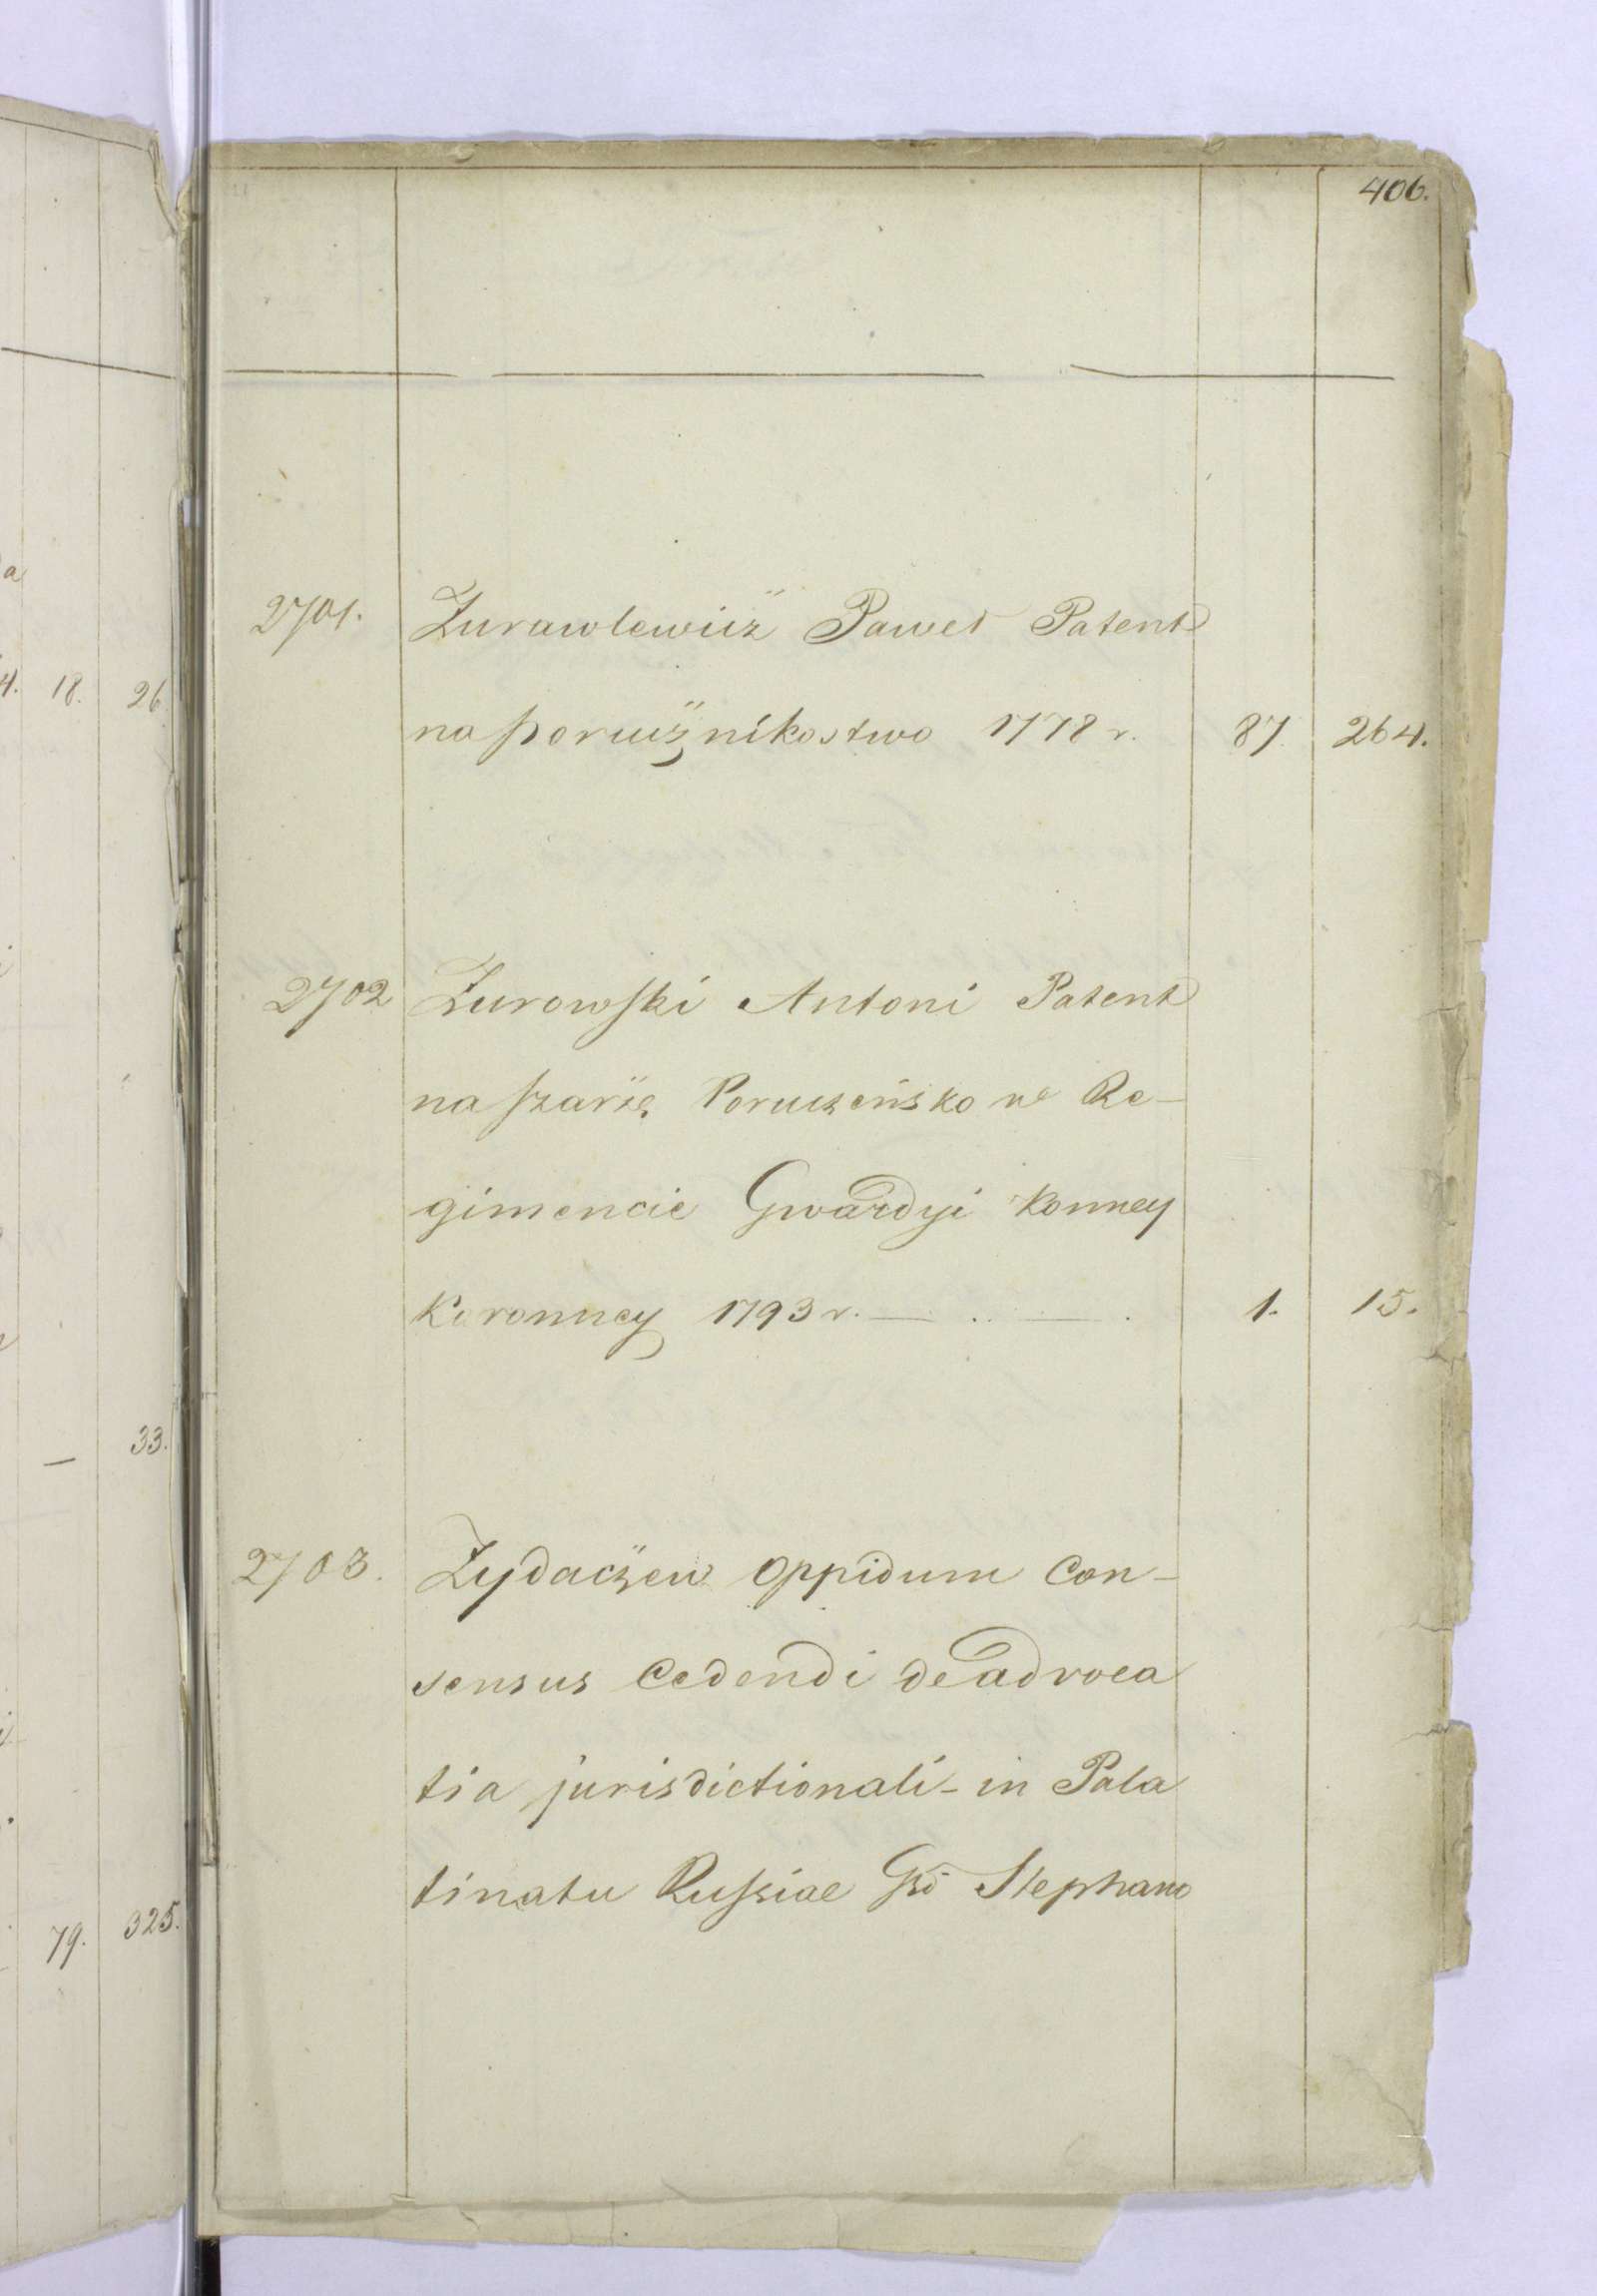 406.
2701. Zurawlewicz Paweł Patent
na porucznikostwo 1778 r. 87. 264.
2702 Zurowski Antoni Patent
na szarże Poruczeńsko w Re-
gimencie Gwardyi Konney
Koronney 1793 r. — .. — . 1. 15.
2703. Zydaczew Oppidum Con-
sensus Cedendi de advoca
tia jurisdictionali - in Pala
tinatu Russiae Gso Stephano
a
4. 18. 26.
— 33.
79. 325.